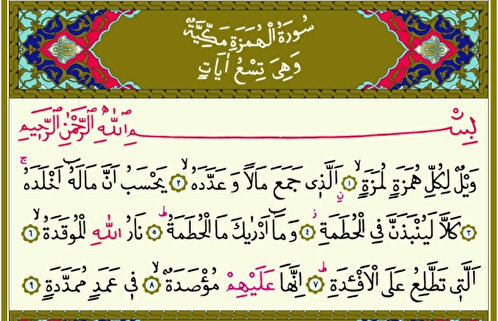 سُورَةُ الْهُمَزَةِ مَكِّيَّةٌ
وَهِيَ تِسْعُ اٰيَاتٍ
بِسْمِ اللّٰهِ الرَّحْمٰنِ الرَّحِيمِ
وَيْلٌ لِكُلِّ هُمَزَةٍ لُمَزَةٍۙ ﴿١﴾ اَلَّذ۪ي جَمَعَ مَالًا وَعَدَّدَهُۙ ﴿٢﴾ يَحْسَبُ اَنَّ مَالَهُٓ اَخْلَدَهُۚ
﴿٣﴾ كَلَّا لَيُنْبَذَنَّ فِي الْحُطَمَةِۘ ﴿٤﴾ وَمَٓا اَدْرٰيكَ مَا الْحُطَمَةُۜ ﴿٥﴾ نَارُ اللّٰهِ الْمُوقَدَةُۙ ﴿٦﴾
اَلَّت۪ي تَطَّلِعُ عَلَى الْاَفْـِٔدَةِۜ ﴿٧﴾ اِنَّهَا عَلَيْهِمْ مُؤْصَدَةٌۙ ﴿٨﴾ ف۪ي عَمَدٍ مُمَدَّدَةٍ ﴿٩﴾